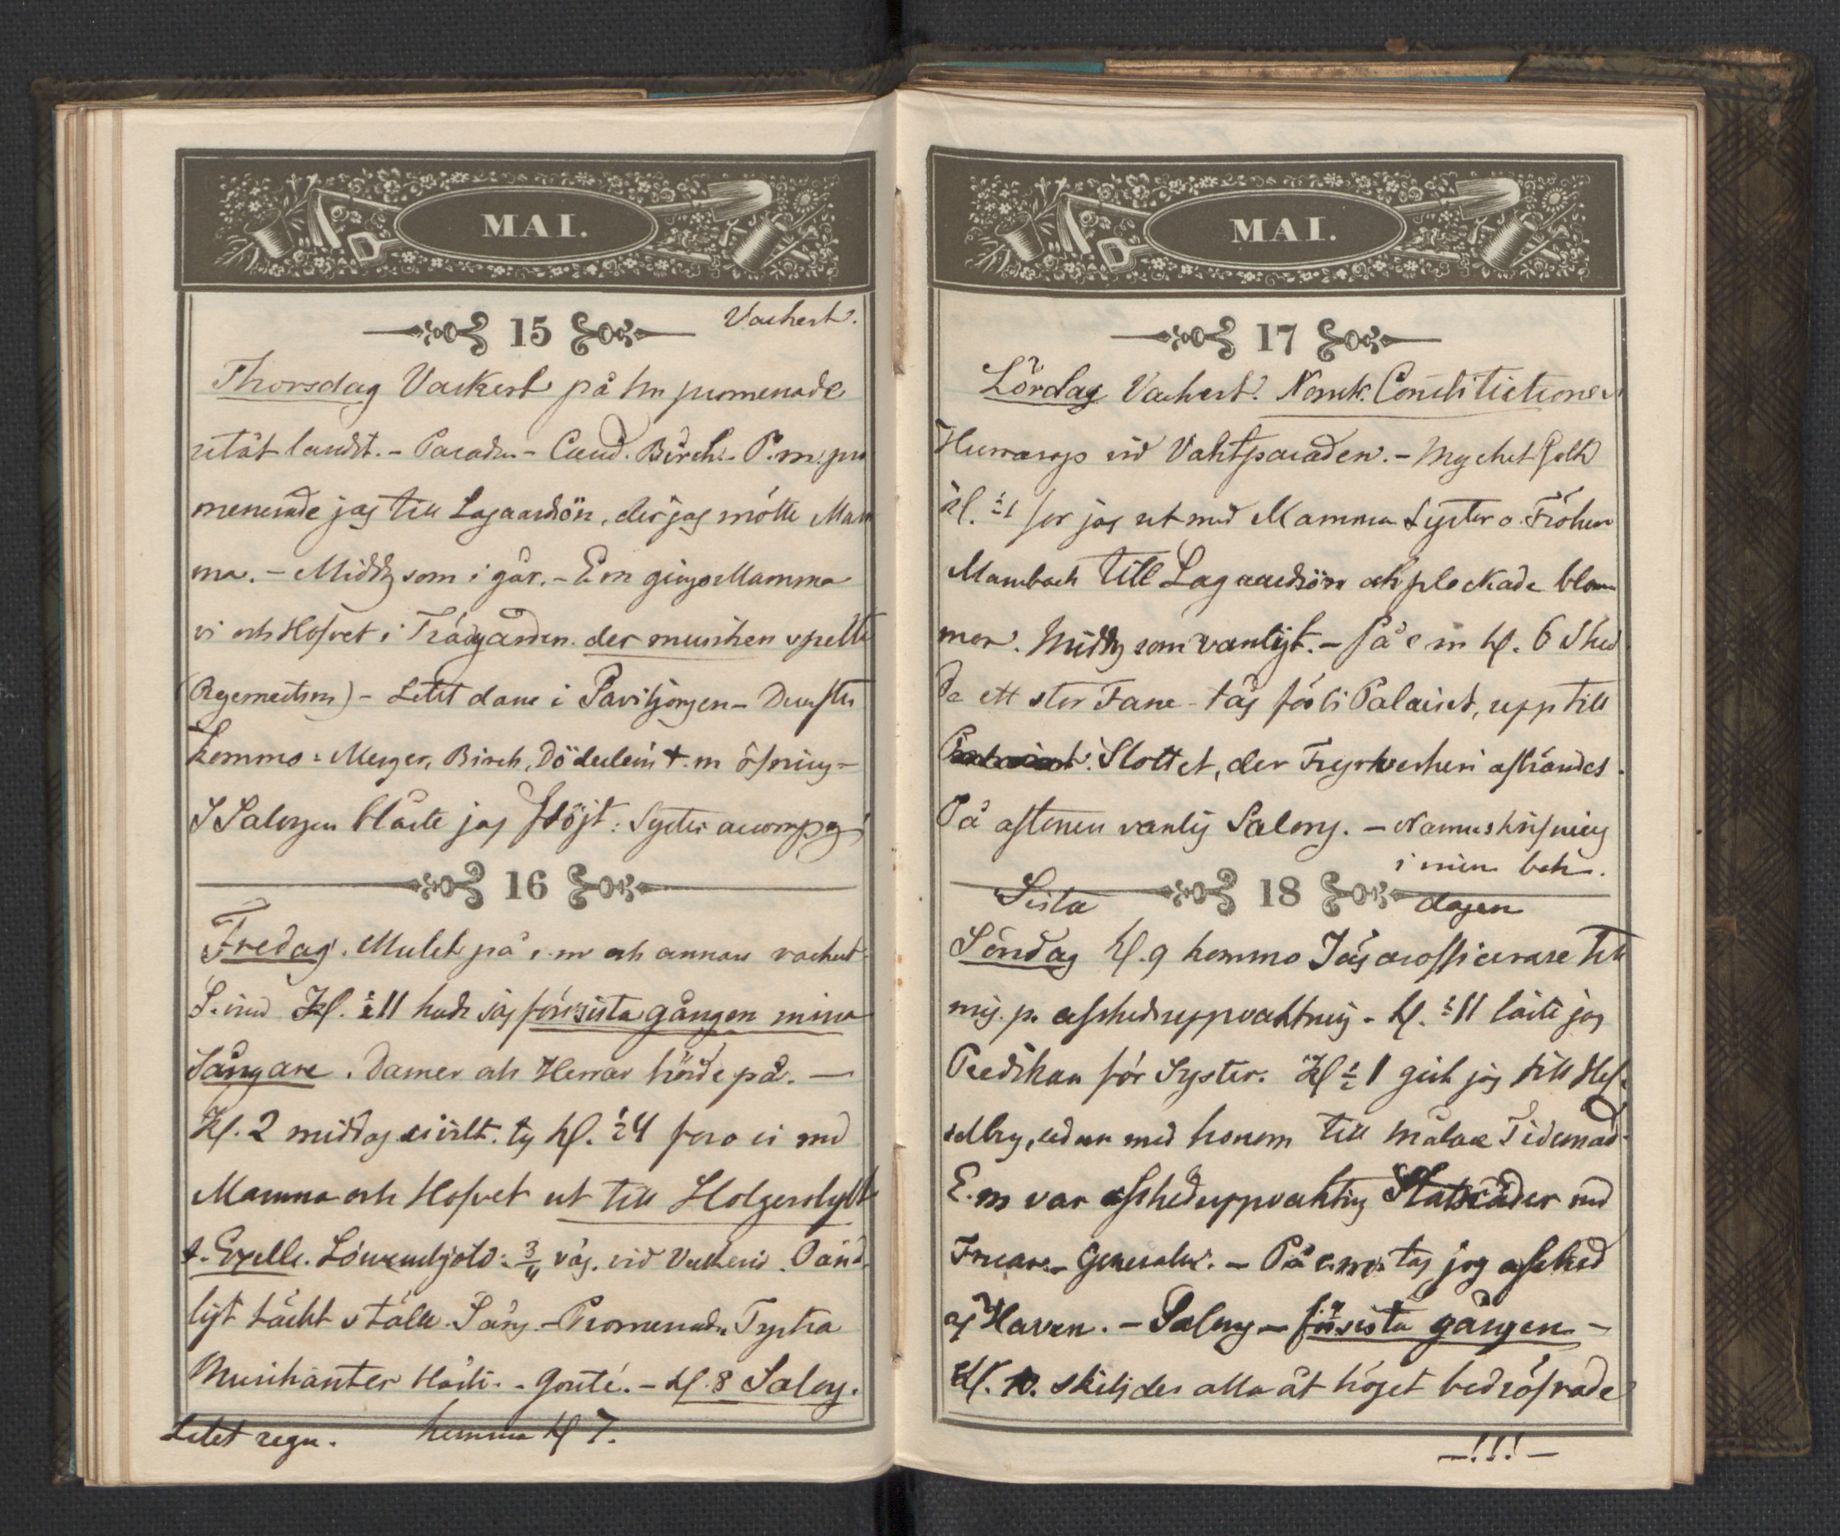 MAI.
15 Vackert.
Thorsdag Vackert på fm promenade
utåt landet. - Paraden - Cand. Birch. P.m. pro
menerade jag till Lagaardsön, der jag mötte Mam
ma. - Midd. som i går. - Em gingo Mamma
vi och Hofvet i Trädgården der musiken spelte
(Regementsm) - Litet dans i Paviljongen -
kommo: Meyer, Birch, Döderlein
I Salongen blåste jag flöjt: Syster acompg.
16
Fredag. Mulet på f.m och annars vackert.
Kl. ½11 hade jag för sista gången mina
Sångare. Damer och Herrar hörde på. —
Kl. 2 middag ty kl. ½4 foro vi med
Mamma och Hofvet ut till Holgerslyst
t. Excell. Löwenskjold: ¾ väg. Oänd
ligt täckt ställe. Sång - Promenade Tyska
Musikanter - Gouté. - Kl. 8 Salong.
Litet regn. hemma kl 7.
MAI.
17
Lördag Vackert. Norsk. Constitutions
Hurrarop vid Vaktparaden. - Mycket folk
Kl. ½1 for jag ut med Mamma Syster o. Fröken
Mambach till Lagaardsön och plockade blom
mor. Midd. som vanligt. - På e m kl. 6 sked
de ett stor Fane-tåg förbi Palaiset, upp till
Slottet, der Fyrverkeri afbrändes.
På aftonen vanlig Salong. - Namnskrifning
i min bok.
18
Sista dagen
Söndag Kl. 9 kommo Jägareofficerare till
mig p. afskedsuppvaktning - Kl. ½11 läste jag
Predikan för Syster. Kl ½1 gick jag till Hes-
selberg, sedan med honom till målare Tidemand.
E.m var afskedsuppvaktning Statsråder med
Fruar - Generaler. - På e.m. tog jag afsked
af Haven. - Salong - för sista gången -
Kl. 10. skiljdes alla åt höget bedröfvade
—!!!—